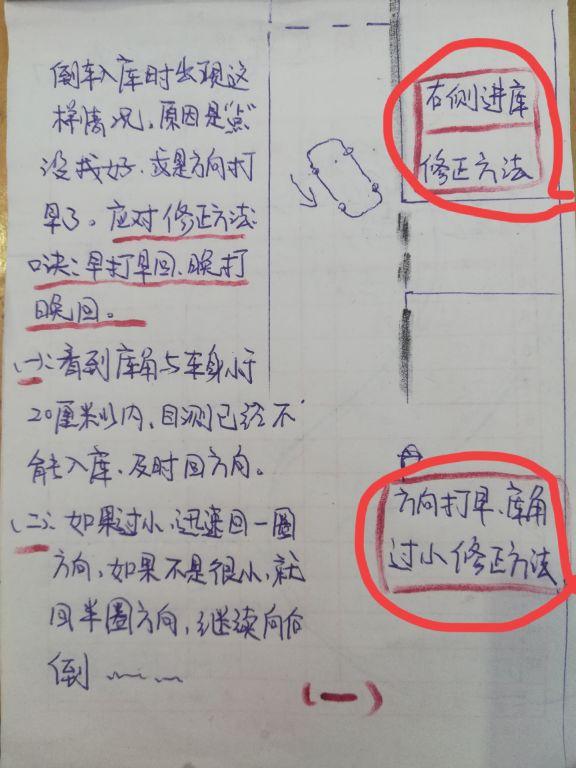 倒车入库时出现这
样情况，原因是“点”
没找好，或是方向打
早了。应对修正方法
口诀：早打早回、晚打
晚回。
(一)：看到库角与车身小于
20厘米以内，目测已经不
能入库，及时回方向。
(二)：如果过小，迅速回一圈
方向，如果不是很小，就
回半圈方向，继续向后
倒……
右侧进库
修正方法
方向打早、库角
过小修正方法
(一)